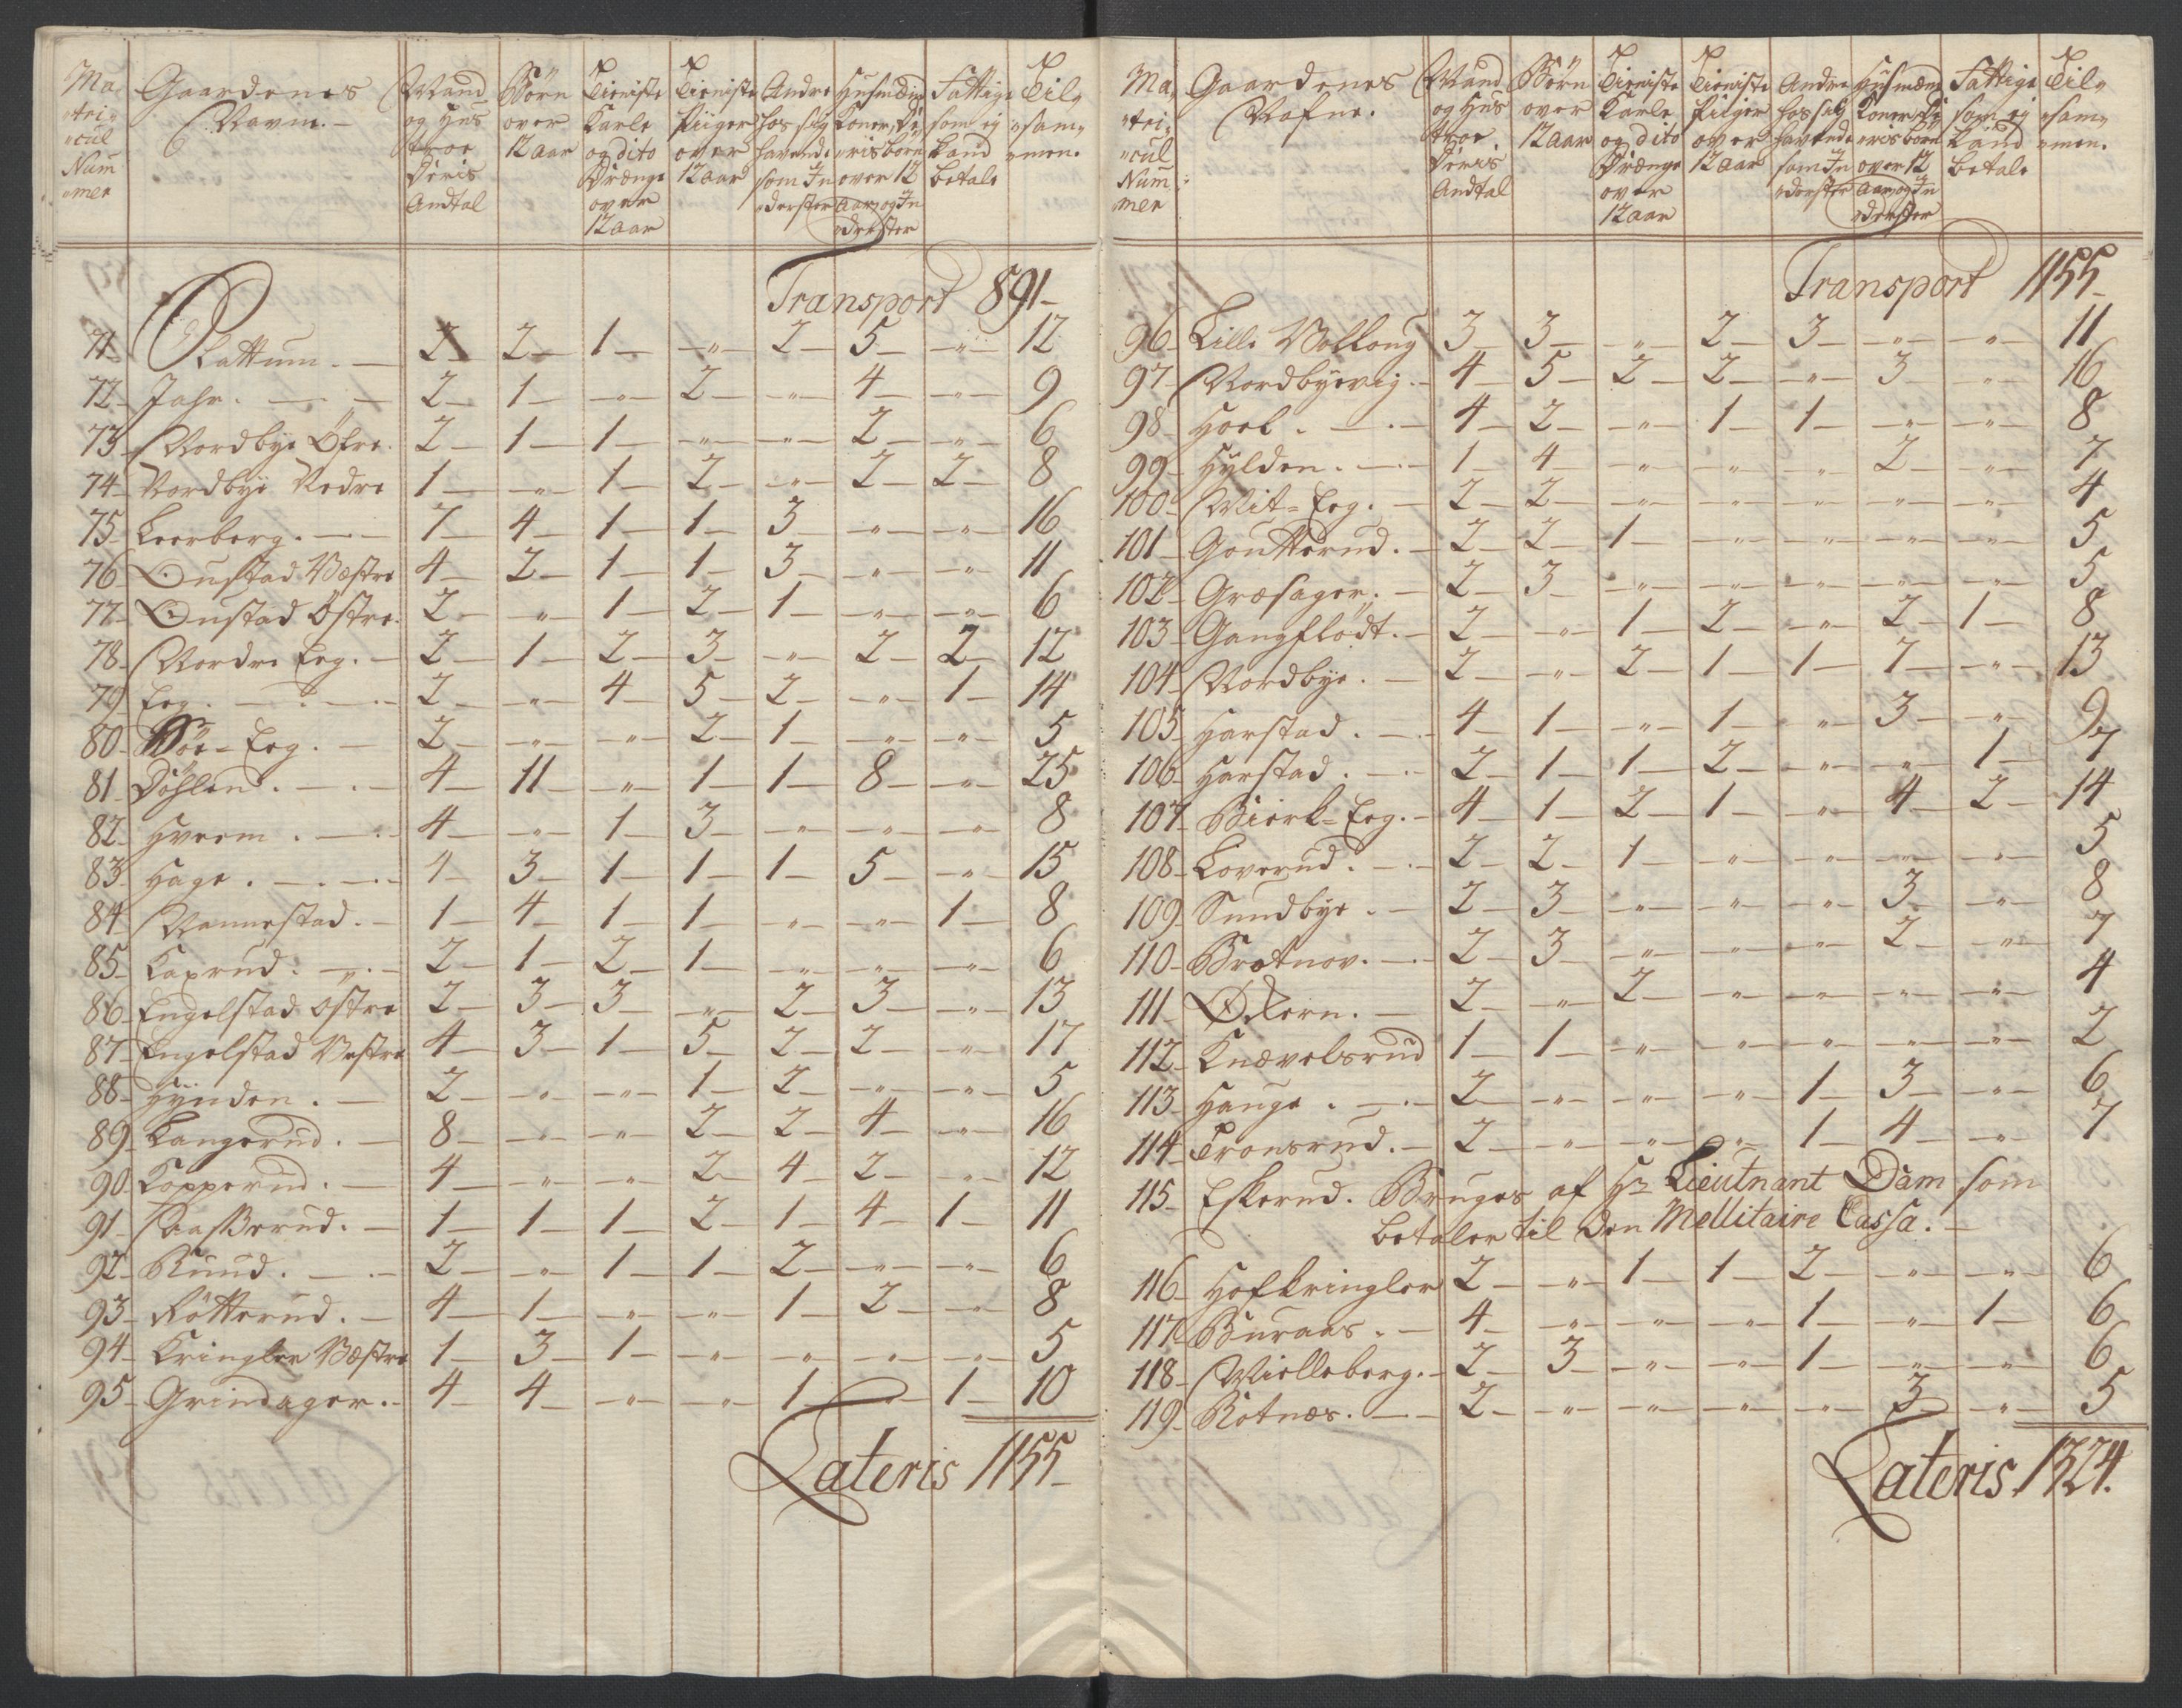 Ma- Gaardenes Mand Börn Tieniste Tieniste Andre Huusmænd Fattige Til-
-tri- Navne.- og Hus over Karle Piiger hos sig Koner, De- som ej -sam-
-cul troe 12 aar og dito over havende -ris börn kand -men.
Num Deris Drænge 12 aar som In- over 12 betale
-mer Andtal over -derster Aar og In-
12 aar -derster
Transport 891-
71- Plattum. - 2 - 2 - 1 - " - 2 - 5 - " - 12
72- Jahr. - 2 - 1 - " - 2 - " - 4 - " - 9
73- Nordbye Öfre. 2 - 1 - 1 - " - " - 2 - " - 6
74- Nordbye Nedre 1 - " - 1 - 2 - " - 2 - 2 - 8
75- Leerberg. - 7 - 4 - 1 - 1 - 3 - " - " - 16
76 Oustad Væstre 4 - 2 - 1 - 1 - 3 - " - " - 11
77- Oustad Östre. 2 - " - 1 - 2 - 1 - " - " - 6
78- Nordre Eeg. - 2 - 1 - 2 - 3 - " - 2 - 2 - 12
79 Eeg. - 2 - " - 4 - 5 - 2 - " - 1 - 14
80- Sör-Eeg. - 2 - " - " - 2 - 1 - " - " - 5
81- Döhlen. - 4 - 11 - " - 1 - 1 - 8 - " - 25
82- Hveem. - 4 - " - 1 - 3 - " - " - " - 8
83- Hage. - 4 - 3 - 1 - 1 - 1 - 5 - " - 15
84 Nannestad. - 1 - 4 - 1 - 1 - " - " - 1 - 8
85- Kaxrud. - 2 - 1 - 2 - 1 - " - " - " - 6
86- Engelstad Östre 2 - 3 - 3 - " - 2 - 3 - " - 13
87- Engelstad Vestre 4 - 3 - 1 - 5 - 2 - 2 - " - 17
88- Hÿnden. - 2 - " - " - 1 - 2 - " - " - 5
89- Kangerud. - 8 - " - " - 2 - 2 - 4 - " - 16
90- Kopperud. - 4 - " - " - 2 - 4 - 2 - " - 12
91- Saasserud. - 1 - 1 - 1 - 2 - 1 - 4 - 1 - 11
92- Ruud. - 2 - " - 1 - 1 - 2 - " - " - 6
93- Rötterud. - 4 - 1 - " - " - 1 - 2 - " - 8
94- Kringler Væstre 1 - 3 - 1 - " - " - " - " - 5
95- Grindager. - 4 - 4 - " - " - 1 - " - 1 - 10
Lateris 1155-
Ma- Gaardenes Mand Börn Tieniste Tieniste Andre Huusmænd Fattige Til-
-tri- Nafne. og Hus over Karle Piiger hos sig Koner, De- som ej -sam-
-cul troe. 12 aar og dito over havende -ris börn kand -men.
Num- Deris Drænge 12 aar som In- over 12 betale
-mer Andtal over -derster Aar og In-
12 aar -derster
Transport 1155-
96- Lille Vollaug 3 - 3 - " - 2 - 3 - " - " - 11
97- Nordbyevig. - 4 - 5 - 2 - 2 - " - 3 - " - 16
98- Hoel. - 4 - 2 - " - 1 - 1 - " - " - 8
99- Hylden. - 1 - 4 - " - " - " - 2 - " - 7
100- Mit-Eeg. - 2 - 2 - " - " - " - " - " - 4
101- Goutterud. - 2 - 2 - 1 - " - " - " - " - 5
102- Græsager. - 2 - 3 - " - " - " - " - " - 5
103- Gangflödt. - 2 - " - 1 - 2 - " - 2 - 1 - 8
104- Nordbye. - 2 - " - 2 - 1 - 1 - 7 - " - 13
105- Harstad. - 4 - 1 - " - 1 - " - 3 - " - 9
106- Harstad. - 2 - 1 - 1 - 2 - " - " - 1 - 7
107- Bierk-Eeg. - 4 - 1 - 2 - 1 - " - 4 - 2 - 14
108- Loverud. - 2 - 2 - 1 - " - " - " - " - 5
109- Sundbye. - 2 - 3 - " - " - " - 3 - " - 8
110- Brotnov. - 2 - 3 - " - " - " - 2 - " - 7
111- Økern. - 2 - " - 2 - " - " - " - " - 4
112- Knævelsrud 1 - 1 - " - " - " - " - " - 2
113- Hauge. - 2 - " - " - " - 1 - 3 - " - 6
114- Tronsrud. - 2 - " - " - " - 1 - 4 - " - 7
115- Eskerud. Bruges af Hr Lieutnant Dam som
betaler til den Mellitaire Cassa. -
116- Hofkringler 2 - " - 1 - 1 - 2 - " - " - 6
117- Buraas. - 4 - " - " - " - 1 - " - 1 - 6
118- Mielleberg. - 2 - 3 - " - " - 1 - " - " - 6
119- Rotnæs. - 2 - " - " - " - " - 3 - " - 5
Lateris 1324.